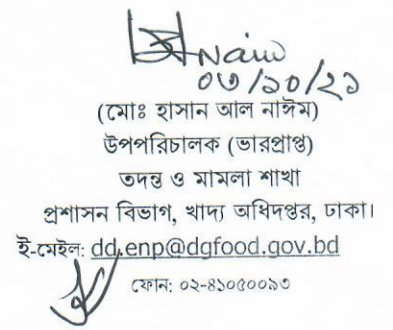 Naim
০৩/১০/২১
(মোঃ হাসান আল নাঈম)
উপপরিচালক (ভারপ্রাপ্ত)
তদন্ত ও মামলা শাখা
প্রশাসন বিভাগ, খাদ্য অধিদপ্তর, ঢাকা।
ই-মেইল: dd.enp@dgfood.gov.bd
ফোন: ০২-৪১০৫০০৯৩